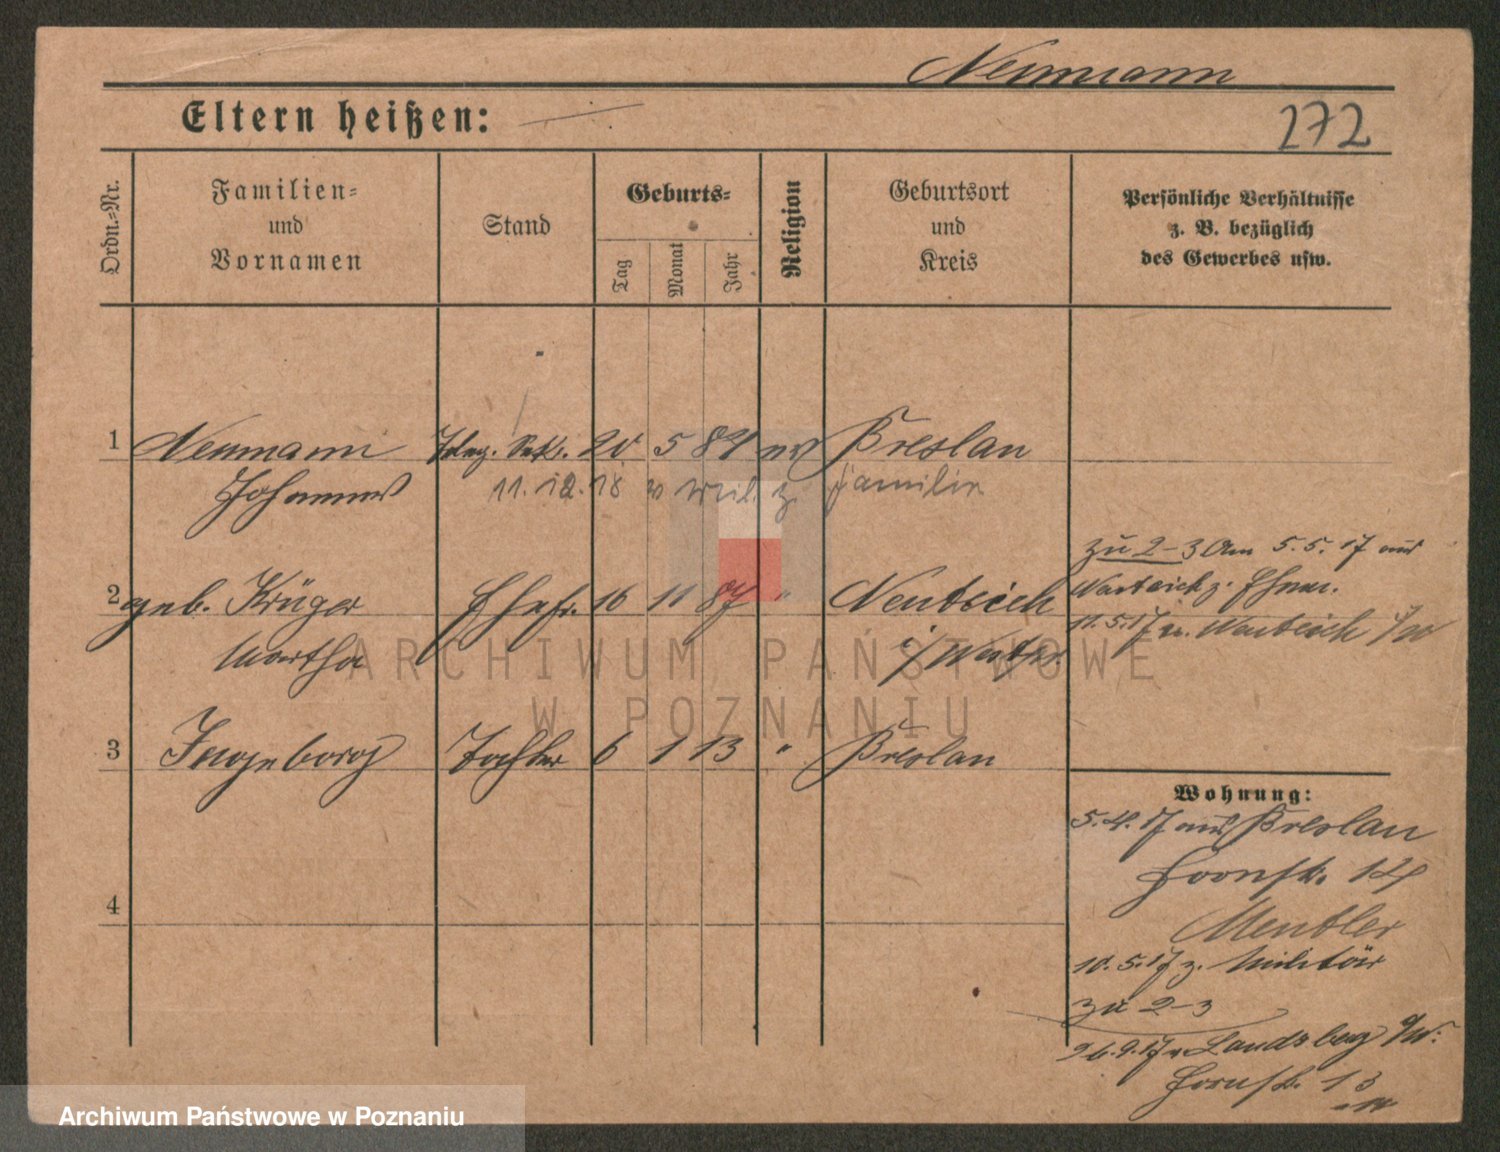 Neumann
Eltern heißen:
272
Ordn.=Nr.
Familien=
und
Vornamen
Stand
Geburts=
Tag
Monat
Jahr
Religion
Geburtsort
und
Kreis
Persönliche Verhältnisse
z. B. bezüglich
des Gewerbes usw.
1 Neumann Teleg. Sekr. 20 5 84 ev Breslau
Johannes 11. 12. 18 z. Familie
zu 2-3 Am 5. 5. 17 aus
2 geb. Krüger Ehefr. 16 11 87 " Neuteich
Martha i/Westpr.
11. 5. 17 n. Neuteich
3 Ingeborg Tochter 6 1 13 " Breslau
Wohnung:
5. 4. 17 aus Breslau
14
4
10. 5. 17 z. Militär
zu 2-3
26. 9. 17 v Landsberg a/W.
13
ARCHIWUM PAŃSTWOWE
W POZNANIU
Archiwum Państwowe w Poznaniu